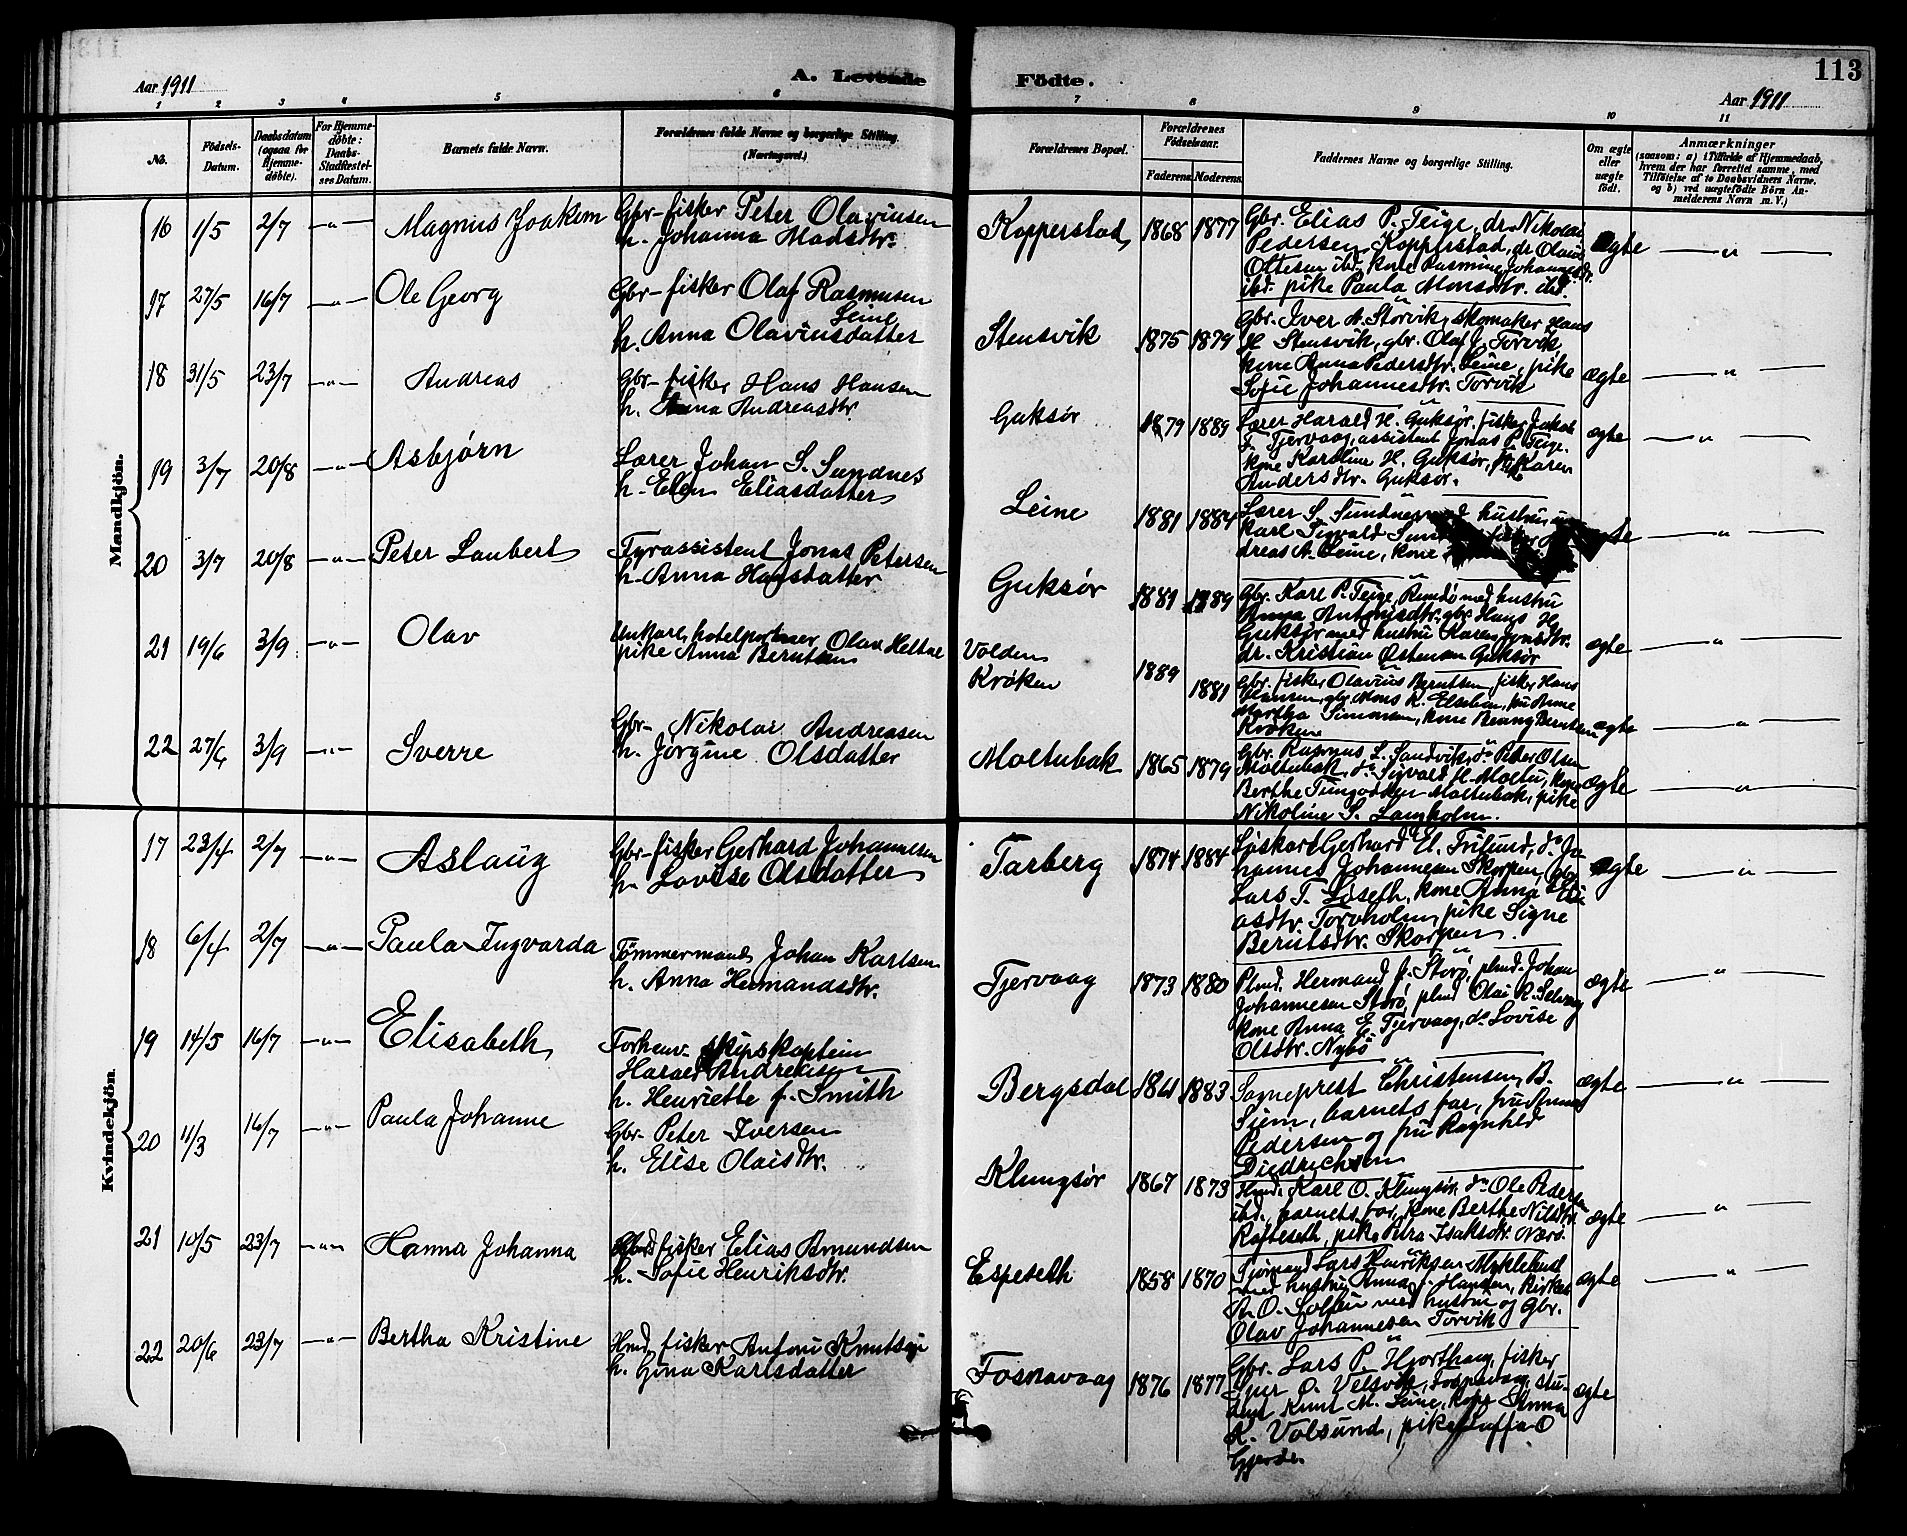 113
Aar 1911
A. Levende
Födte.
Aar 1911
1 2 3 4 5 6 7 8 9 10 11
No.
Födsels-
Datum.
Daabsdatum
(ogsaa for
Hjemme-
døbte).
For Hjemme-
döbte:
Daabs-
Stadfæstel-
ses Datum.
Barnets fulde Navn.
Forældrenes fulde Navne og borgerlige Stilling.
(Næringsvei.)
Forældrenes Bopæl.
Forældrenes
Födselsaar.
Faderens.
Moderens.
Faddernes Navne og borgerlige Stilling.
Om ægte
eller
uægte
födt.
Anmærkninger
(saasom: a) i Tilfælde af Hjemmedaab,
hvem der har forrettet samme, med
Tilföielse af to Daabsvidners Navne,
og b) ved uægtefödte Börn An-
melderens Navn m. V.)
Mandkjön.
16 1/5 2/7 -"- Magnus Joakim
Gbr-fisker Peter Olaviusen
h. Johanna Madsdtr.
Kopperstad 1868 1877
Gbr. Elias P. Teige, dr. Nikolai
Pedersen Kopperstad, dr. Olaus
Ottesen ibd. kone Rasmine Johannesdtr.
ibd. pike Paula Monsdtr. ibd.
ægte -"-
17 27/5 16/7 -"- Ole Georg
Gbr-fisker Olaf Rasmusen
Leine
h. Anna Olaviusdatter
Stensvik 1875 1879
Gbr. Iver A. Storvik, skomaker Hans
H. Stensvik, gbr. Olaf J. Torvik
kone Anna Pedersdtr. Leine, pike
Sofie Johannesdtr. Torvik
ægte -"-
18 31/5 23/7 -"- Andreas
Gbr-fisker Hans Hansen
h. Anna Andreasdtr.
Guksør 1879 1889
Lærer Harald H. Guksør, fisker Jakob
F. Tjervaag, assistent Jonas P. Teige.
kone Karoline H. Guksør, pike Karen
Andersdtr. Guksør.
ægte -"-
19 3/7 20/8 -"- Asbjørn
Lærer Johan S. Sundnes
h. Elen Eliasdatter
Leine 1881 1884
Lærer S. Sundnes med hustru,
Karl Sigvald
dreas A. Leine, kone
ægte -"-
20 3/7 20/8 -"- Peter Laubert
Fyrassistent Jonas Petersen
h. Anna Hansdatter
Guksør 1881 1889
Gbr. Karl P. Teige, Rundø med hustru
Anna Antonisdtr. gbr. Hans H.
Guksør med hustru Karen Jonsdtr.
dr. Kristian Østensen Guksør
ægte -"-
21 19/6 3/9 -"- Olav
Unkarl, hotelportner Olav Heltne
pike Anna Berntsen
Volden
Krøken
1889
1881
Gbr. fisker Olavius Berntsen, fisker Hans
Hansen, gbr. Mons K.
Martha Simonsen, kone Berntsen
Krøken
ægte -"-
22 27/6 3/9 -"- Sverre
Gbr- Nikolai Andreasen
h. Jørgine Olsdatter
Moltubak 1865 1879
Gbr. Rasmus L. Sandvik, do Peder Olsen
Moltubak, do Sigvald H. Moltu, kone
Berthe Moltubak, pike
Nikoline S. Lamholm.
ægte -"-
Kvindekjön.
17 23/4 2/7 -"- Aslaug
Gbr-fisker Gerhard Johannesen
h. Lovise Olsdatter
Tarberg 1874 1884
Gerhard El. Frilund, do Jo
hannes Johannesen Skorpen, gbr.
Lars T. Løseth, kone Anna Eli
asdtr. Torvholm, pike Signe
Berntsdtr. Skorpen.
ægte -"-
18 6/4 2/7 -"- Paula Ingvarda
Tömmermand Johan Karlsen
h. Anna Hermandsdtr.
Tjervaag 1873 1880
Plmd. Hermand J. Storø, plmd. Johan
Johannesen Storø, plmd Olai R. Selvaag
kone Anna E. Tjervaag, do Lovise
Olsdtr. Nybø
ægte -"-
19 14/5 16/7 -"- Elisabeth
Forhenv. skipskaptein
Harald Andreasen
h. Henriette f. Smith
Bergsdal 1861 1883
Sogneprest Christensen, B.
Siem, barnets far, fru Anna
Pedersen og fru Ragnhild
Diedrichsen
ægte -"-
20 11/3 16/7 -"- Paula Johanne
Gbr- Peter Iversen
h. Elise Olaisdtr.
Klungsør 1867 1873
Hmd. Karl O. Klungsør, do Ole Pedersen
ibd. barnets far, kone Berthe Nilsdtr.
Rafteseth, pike Petra Isaksdtr. Nærø.
ægte -"-
21 10/5 23/7 -"- Hanna Johanna
fisker Elias Amundsen
h. Sofie Henriksdtr.
Espeseth 1858 1870
Sjömand Lars Henriksen Myklebust
med hustru Anna f. Hansen, Kirkes.
A. O. med hustru og Gbr.
Olav Johannesen Torvik
ægte -"-
22 20/6 23/7 -"- Bertha Kristine
Hmd, fisker Antoni Knutsen
h. Gina Karlsdatter
Fosnavaag 1876 1877
Gbr. Lars P. Hjorthaug, fisker
O. Velsvik, Fosnavaag, stu-
dent Knut M. Leine, kone Anna
K. Volsund, pike O
Gjerde.
ægte